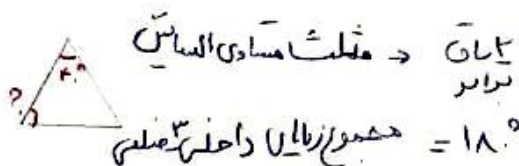 ۲ ساق
برابر → مثلث متساوی الساقین
۴۰°
?
مجموع زوایای داخلی ۳ ضلعی = ۱۸۰°